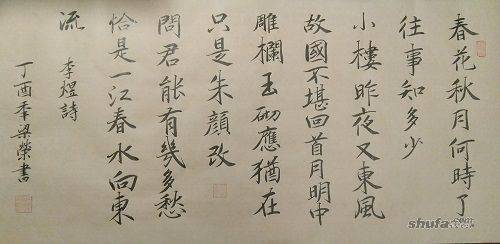 春花秋月何時了
往事知多少
小樓昨夜又東風
故國不堪回首月明中
雕欄玉砌應猶在
只是朱顏改
問君能有幾多愁
恰是一江春水向東
流
李煜詩
丁酉年梁榮書
shufa.com